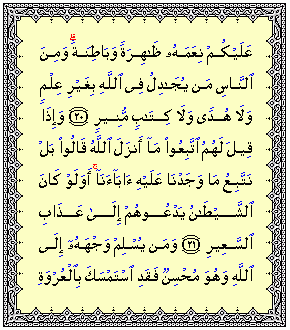 عَلَيْكُمْ نِعَمَهُۥ ظَٰهِرَةً وَبَاطِنَةً ۗ وَمِنَ
ٱلنَّاسِ مَن يُجَٰدِلُ فِى ٱللَّهِ بِغَيْرِ عِلْمٍ
وَلَا هُدًى وَلَا كِتَٰبٍ مُّنِيرٍ ﴿٢٠﴾ وَإِذَا
قِيلَ لَهُمُ ٱتَّبِعُوا۟ مَآ أَنزَلَ ٱللَّهُ قَالُوا۟ بَلْ
نَتَّبِعُ مَا وَجَدْنَا عَلَيْهِ ءَابَآءَنَآ ۚ أَوَلَوْ كَانَ
ٱلشَّيْطَٰنُ يَدْعُوهُمْ إِلَىٰ عَذَابِ
ٱلسَّعِيرِ ﴿٢١﴾ وَمَن يُسْلِمْ وَجْهَهُۥٓ إِلَى
ٱللَّهِ وَهُوَ مُحْسِنٌ فَقَدِ ٱسْتَمْسَكَ بِٱلْعُرْوَةِ